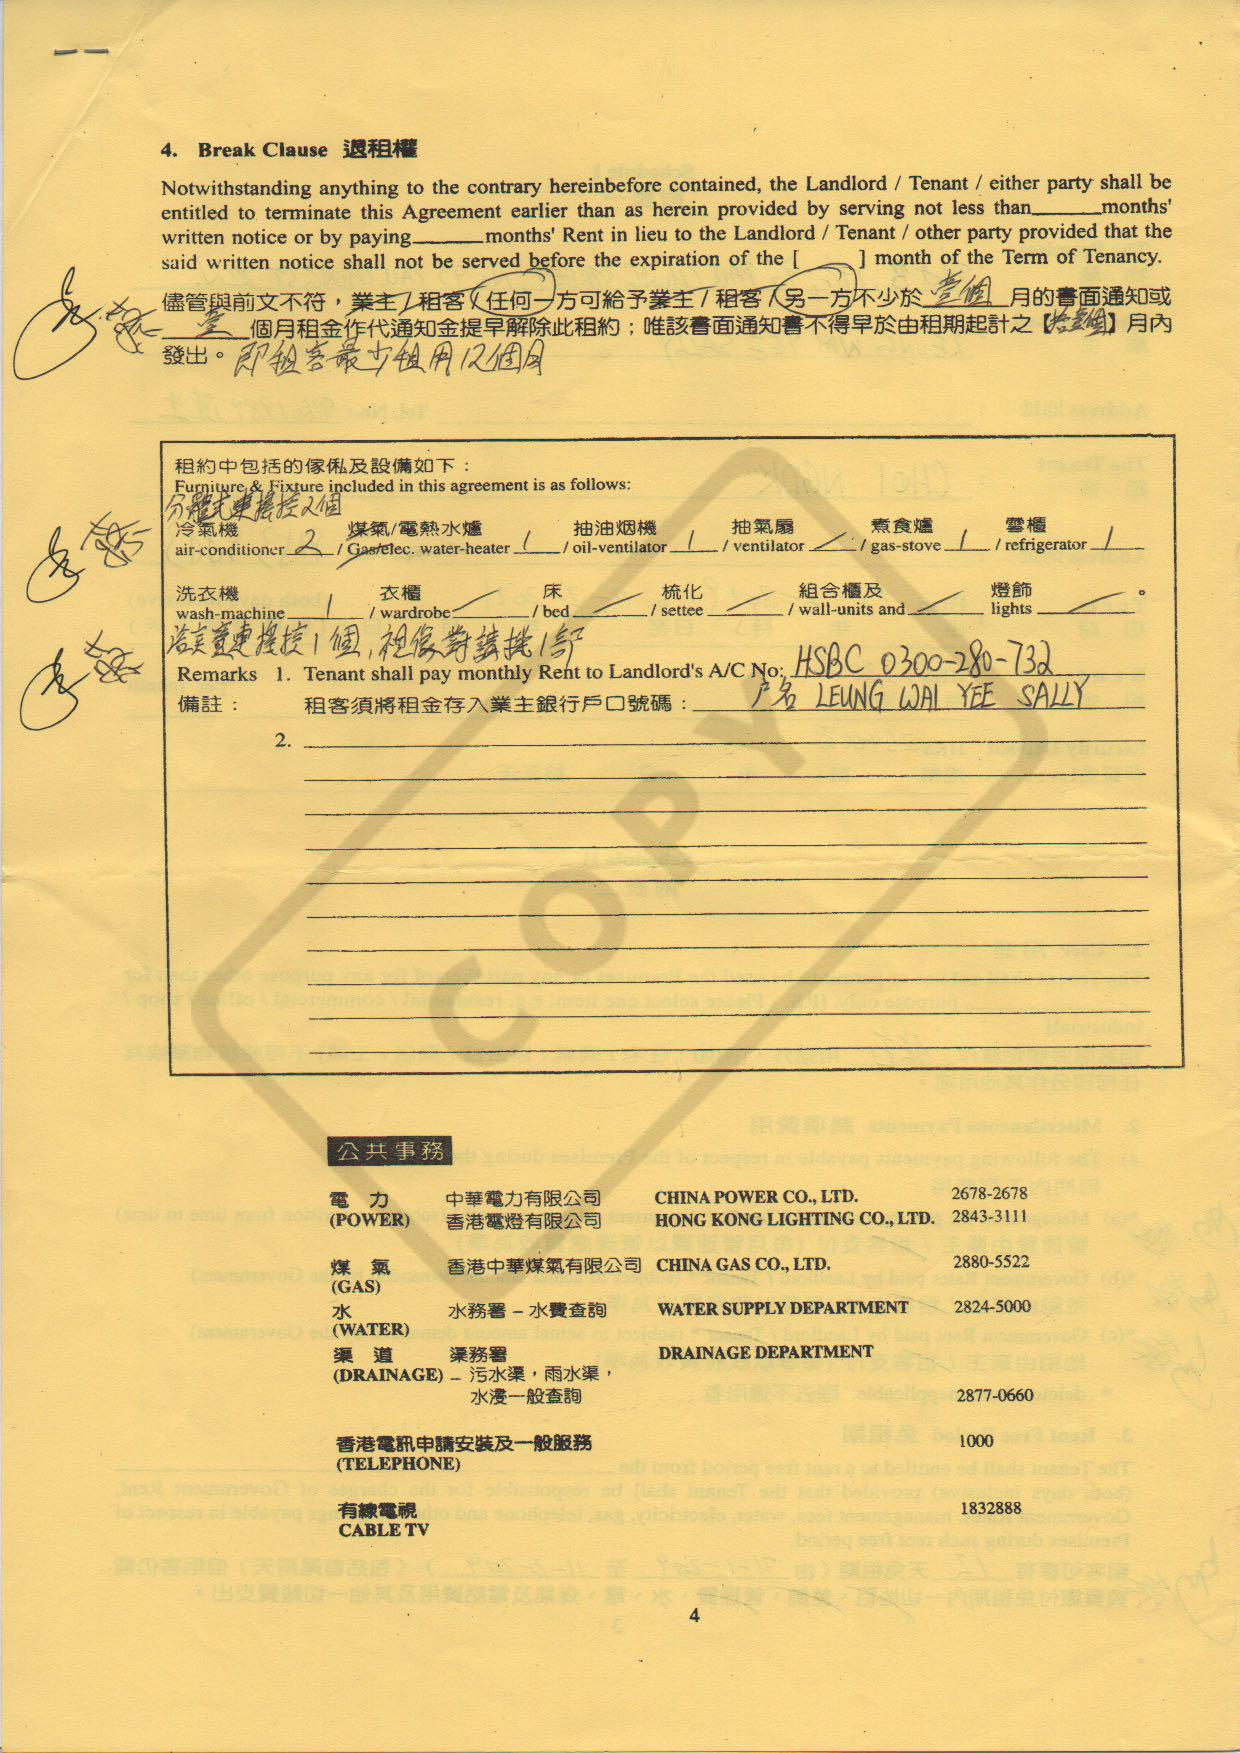 4. Break Clause 退租權
Notwithstanding anything to the contrary hereinbefore contained, the Landlord / Tenant / either party shall be
entitled to terminate this Agreement earlier than as herein provided by serving not less than______months'
written notice or by paying______months' Rent in lieu to the Landlord / Tenant / other party provided that the
said written notice shall not be served before the expiration of the [ ] month of the Term of Tenancy.
儘管與前文不符，業主/租客/任何一方可給予業主/租客/另一方不少於 壹個 月的書面通知或
壹 個月租金作代通知金提早解除此租約；唯該書面通知書不得早於由租期起計之【拾壹個】月內
發出。即租客最少租用12個月
租約中包括的傢俬及設備如下：
Furniture & Fixture included in this agreement is as follows:
分體式東搖控2個
冷氣機 煤氣/電熱水爐 抽油烟機 抽氣扇 煮食爐 雪櫃
air-conditioner 2 / Gas/elec. water-heater 1 / oil-ventilator 1 / ventilator / gas-stove 1 / refrigerator 1
洗衣機 衣櫃 床 梳化 組合櫃及 燈飾 。
wash-machine 1 / wardrobe / bed / settee / wall-units and lights
浴室寶東搖控1個,視像對講機1部
Remarks 1. Tenant shall pay monthly Rent to Landlord's A/C No: HSBC 0300-280-732
備註： 租客須將租金存入業主銀行戶口號碼： 户名 LEUNG WAI YEE SALLY
2.
COPY
公共事務
電 力 中華電力有限公司 CHINA POWER CO., LTD. 2678-2678
(POWER) 香港電燈有限公司 HONG KONG LIGHTING CO., LTD. 2843-3111
煤 氣 香港中華煤氣有限公司 CHINA GAS CO., LTD. 2880-5522
(GAS)
水 水務署 – 水費查詢 WATER SUPPLY DEPARTMENT 2824-5000
(WATER)
渠 道 渠務署 DRAINAGE DEPARTMENT
(DRAINAGE) – 污水渠，雨水渠，
水浸一般查詢 2877-0660
香港電訊申請安裝及一般服務 1000
(TELEPHONE)
有線電視 1832888
CABLE TV
4